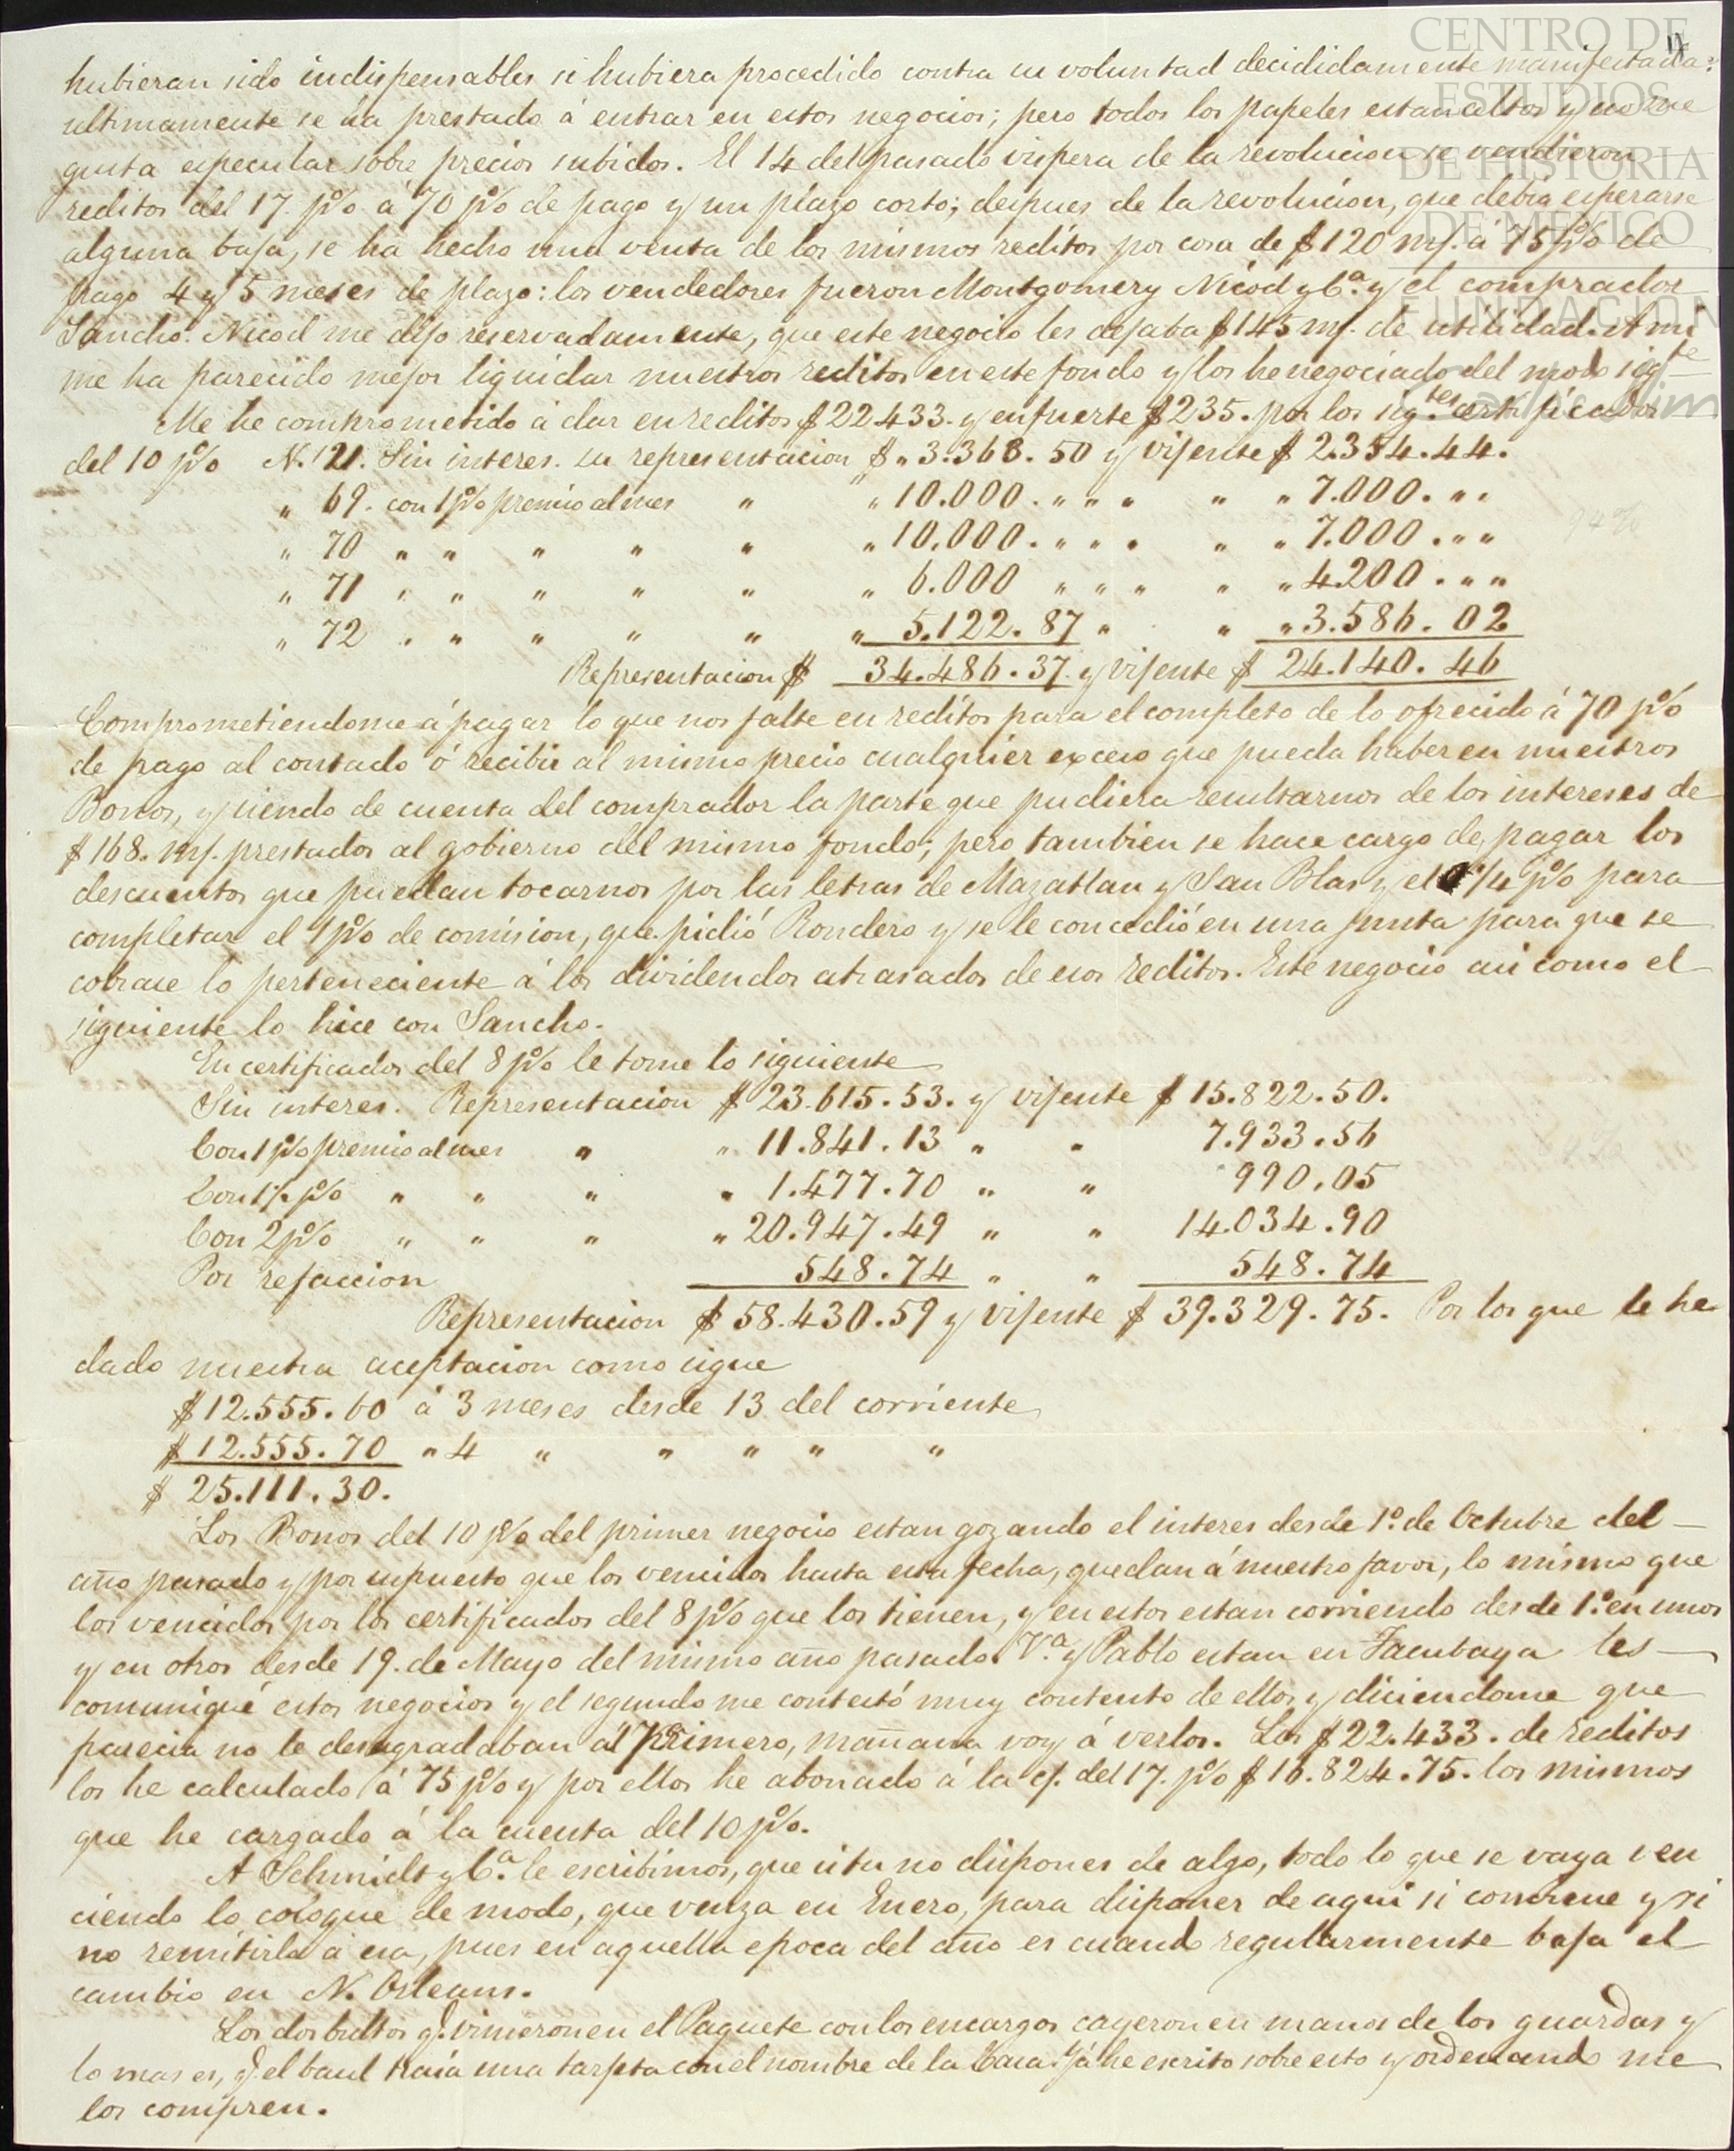 hubieran sido indispensables si hubiera procedido contra su voluntad decididamente manifestada:
ultimamente se ha prestado á entrar en estos negocios; pero todos los papeles estan altos y no me
gusta especular sobre precios subidos. El 14 del pasado vispera de la revolucion se vendieron
reditos del 17. p% á 70 p% de pago y un plazo corto; despues de la revolucion, que debia esperarse
alguna baja, se ha hecho una venta de los mismos reditos por cosa de $120 m/. á 75 p% de
pago 4 y 5 meses de plazo: los vendedores fueron Montgomery Nicod y Cª. y el comprador
Sancho. Nicod me dijo reservadamente, que este negocio les dejaba $145 m/. de utilidad. A mi
me ha parecido mejor liquidar nuestros reditos en este fondo y los he negociado del modo sigte
Me he comprometido á dar en reditos $22.433. y en fuerte $235. por los sigtes. certificados
del 10 p% N. 121. Sin interes. su representacion $ „ 3.368. 50 y vijente $ 2.354.44.
„ 69. con 1 p% premio al mes „ „ 10.000. „ „ „ „ „ 7.000. „ „
„ 70 „ „ „ „ „ „ 10.000. „ „ „ „ „ 7.000. „ „
„ 71 „ „ „ „ „ „ 6.000 „ „ „ „ „ 4.200. „ „
„ 72 „ „ „ „ „ „ 5.122. 87 „ „ „ 3.586. 02
Representacion $ 34.486.37. y vijente $ 24.140. 46
Comprometiendome á pagar lo que nos falte en reditos para el completo de lo ofrecido á 70 p%
de pago al contado ó recibir al mismo precio cualquier exceso que pueda haber en nuestros
Bonos, y siendo de cuenta del comprador la parte que pudiera resultarnos de los intereses de
$168. m/. prestados al gobierno del mismo fondo; pero tambien se hace cargo de pagar los
descuentos que puedan tocarnos por las letras de Mazatlan y San Blas y el 1/4 p% para
completar el 1 p% de comision, que pidió Rondero y se le concedió en una junta para que se
cobrase lo perteneciente á los dividendos atrasados de esos reditos. Este negocio asi como el
siguiente lo hice con Sancho.
En certificados del 8 p% le tome lo siguiente
Sin interes. Representacion $ 23.615.53. y vijente $ 15.822.50.
Con 1 p% premio al mes „ „ 11.841.13 „ „ 7.933.56
Con 1½ p% „ „ „ „ 1.477.70 „ „ 990.05
Con 2 p% „ „ „ „ 20.947.49 „ „ 14.034.90
Por refaccion 548.74 „ „ 548.74
Representacion $ 58.430.59 y vijente $ 39.329.75. Por los que le he
dado nuestra aceptacion como sigue
$ 12.555.60 á 3 meses desde 13 del corriente
$ 12.555.70 „ 4 „ „ „ „ „
$ 25.111.30.
Los Bonos del 10 p% del primer negocio estan gozando el interes desde 1º. de Octubre del
año pasado y por supuesto que los vencidos hasta esta fecha, quedan á nuestro favor, lo mismo que
los vencidos por los certificados del 8 p% que los tienen, y en estos estan corriendo desde 1º. en unos
y en otros desde 19. de Mayo del mismo año pasado. Vª. y Pablo estan en Tacubaya les
comuniqué estos negocios y el segundo me contestó muy contento de ellos y diciendome que
parecia no le desagradaban al Primero, mañana voy á verlos. Los $22.433. de reditos
los he calculado á 75 p% y por ellos he abonado á la c/. del 17. p% $16.824.75. los mismos
que he cargado á la cuenta del 10 p%.
A Schmidt y Cª. le escribimos, que si tu no dispones de algo, todo lo que se vaya ven
ciendo lo coloque de modo, que venza en Enero, para disponer de aqui si conviene y si
no remitirla á esa, pues en aquella epoca del año es cuando regularmente baja el
cambio en N. Orleans.
Los dos bultos q. vinieron en el Paquete con los encargos cayeron en manos de los guardas y
lo mas es, q. el baul traia una tarjeta con el nombre de la Casa: Ya he escrito sobre esto y ordenando me
los compren.
CENTRO DE
ESTUDIOS
DE HISTORIA
DE MÉXICO
FUNDACIÓN